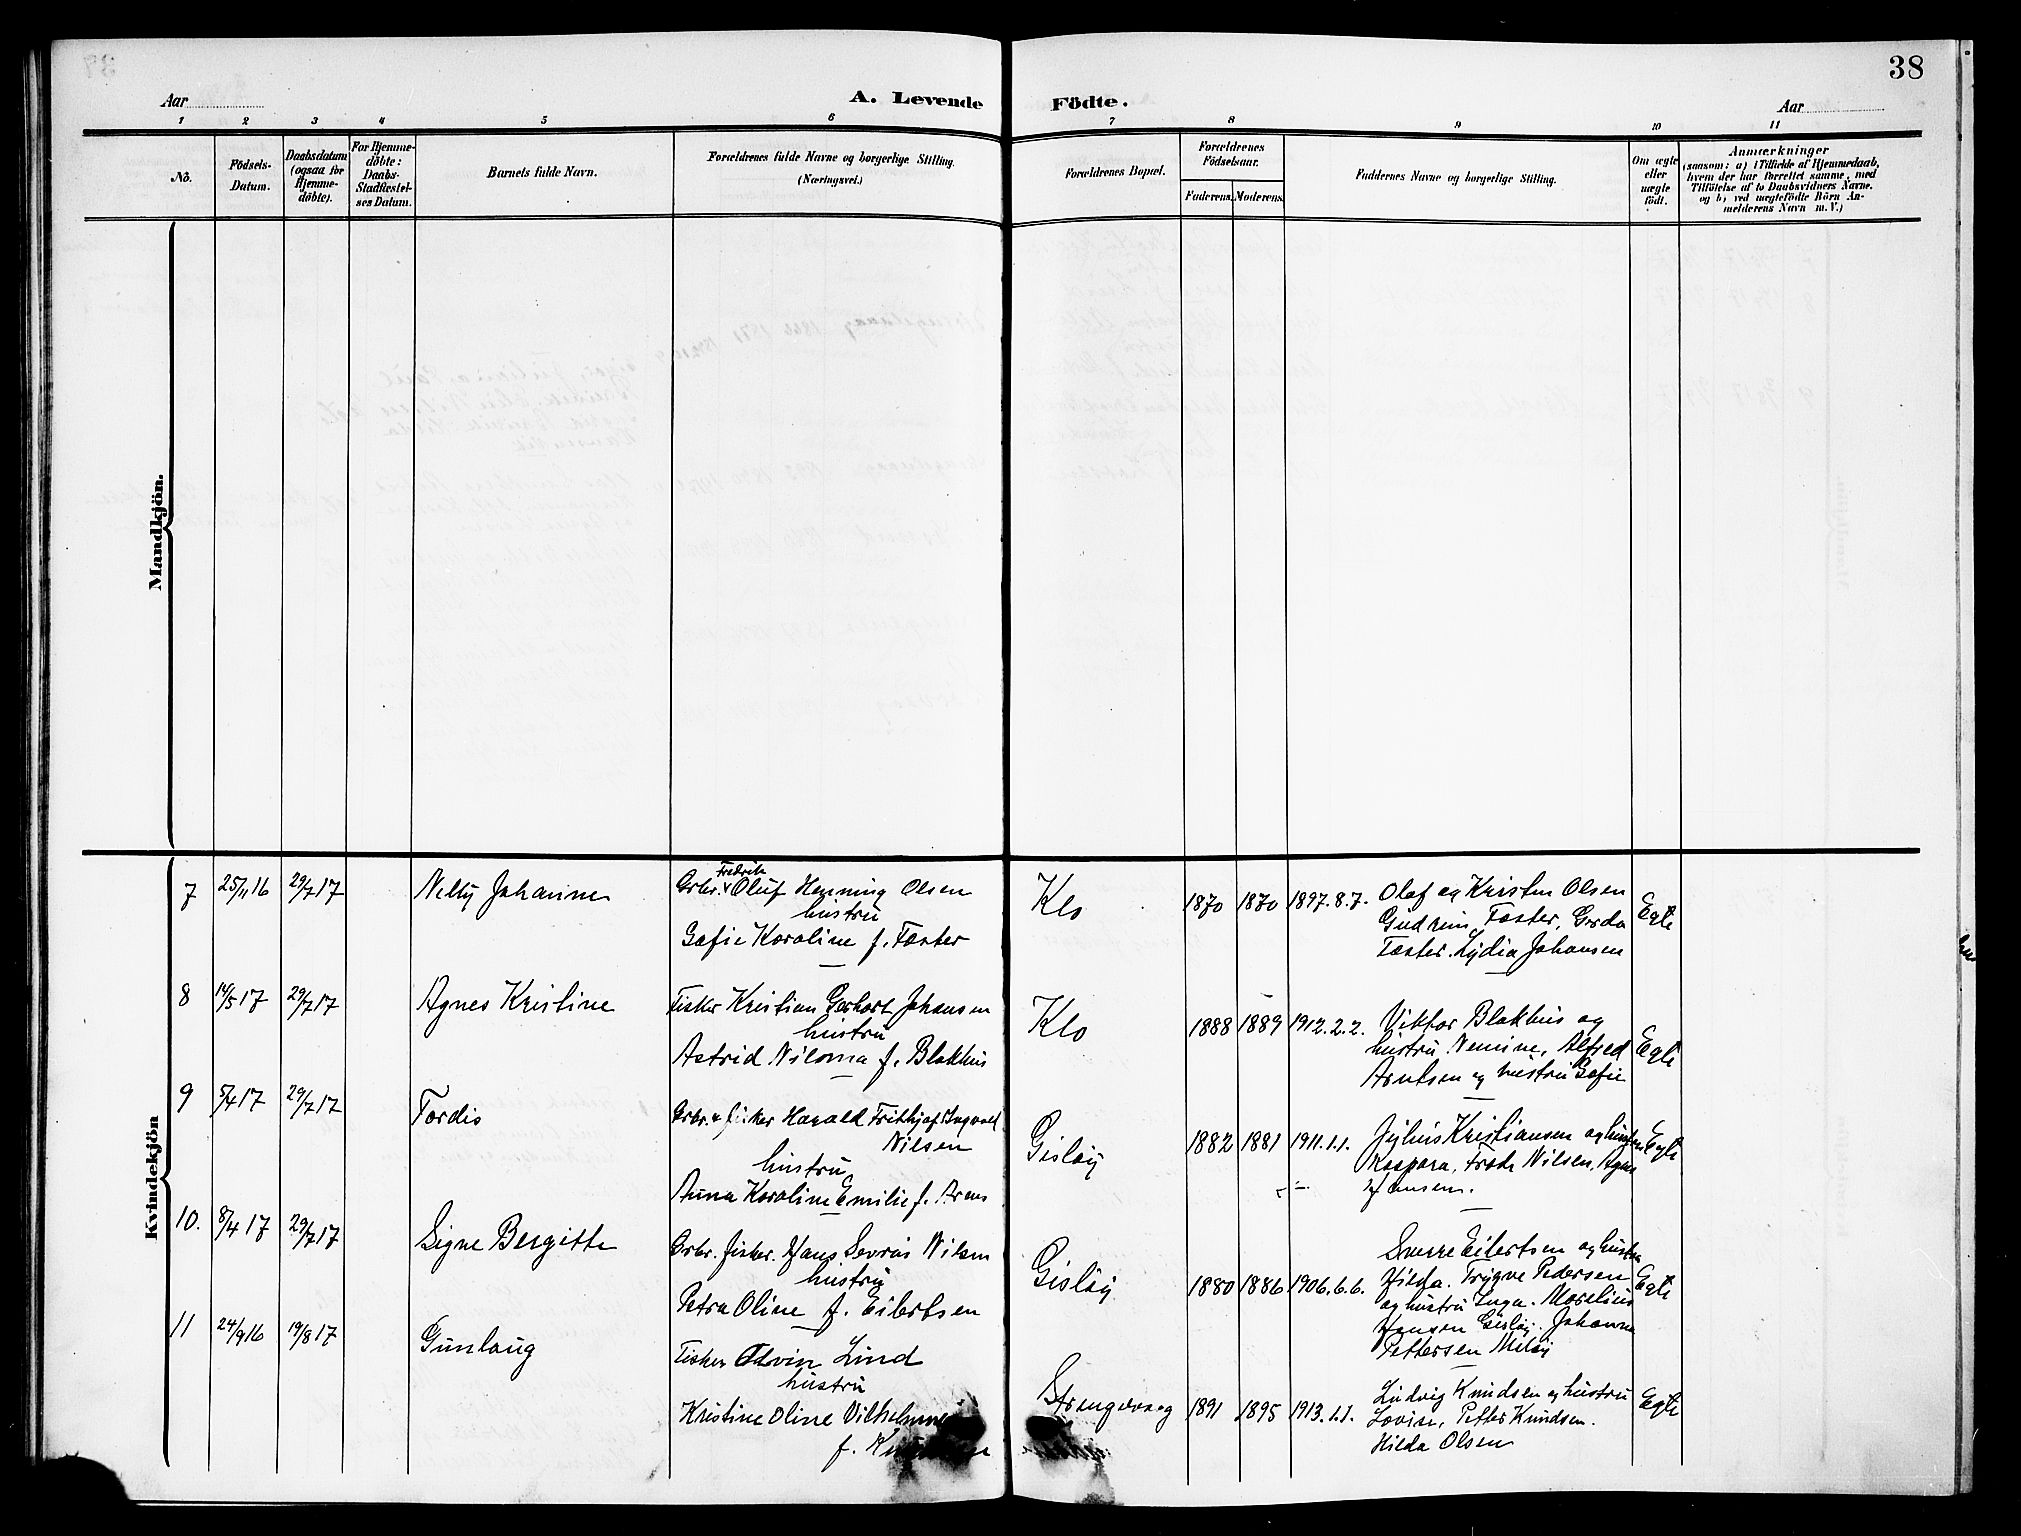 38
Aar
A. Levende
Födte.
Aar
1 2 3 4 5 6 7 8 9 10 11
No.
Födsels-
Datum.
Daabsdatum
(ogsaa for
Hjemme-
döbte).
For Hjemme-
döbte:
Daabs-
Stadfæstel-
ses Datum.
Barnets fulde Navn.
Forældrenes fulde Navne og borgerlige Stilling.
(Næringsvei.)
Forældrenes Bopæl.
Forældrenes
Födselsaar.
Faderens. Moderens.
Faddernes Navne og borgerlige Stilling.
Om ægte
eller
uægte
födt.
Anmærkninger
(saasom: a) i Tilfælde af Hjemmedaab,
hvem der har forrettet samme, med
Tilföielse af to Daabsvidners Navne.
og b) ved uægtefödte Börn An-
melderens Navn m. V.)
Mandkjön.
Kvindekjön
7 25/11 16 29/7 17 Nelly Johanne
Fredrik
Grbr. Oluf Henning Olsen
hustru
Sofie Karoline f. Foster
Klo 1870 1870 1897.8.7.
Olaf og Kristen Olsen
Gudrun Foster, Gerda
Foster. Lydia Johansen
Egte
8 14/5 17 29/7 17 Agnes Kristine
Fisker Kristian Gerhart Johansen
hustru
Astrid Niloma f. Blakhus
Klo 1888 1889 1912.2.2.
Viktor Blakhus og
hustru Nemine, Alfred
Arntsen og hustru Sofie
Egte
9 5/4 17 29/7 17 Tordis
Grbr. & fisker Harald Frithjof Ingvald
Nilsen
hustru
Anna Karoline Emilie f. Arens
Gisløy 1882 1881 1911.1.1.
Julius Kristiansen og hustru
Kaspara, Frode Nilsen, Agnes
Hansen.
Egte
10. 8/4 17 29/7 17 Signe Bergitte
Grbr. fisker. Hans Sevrús Nilsen
hustru
Petra Oline f. Eilertsen
Gisløy 1880 1886 1906.6.6.
Sverre Eilertsen og hustru
Hilda. Trygve Pedersen
og hustru Inga. Marelius
Hansen Gisløy. Johanna
Pettersen Meløy
Egte
11 24/9 16 19/8 17 Gunlaug
Fisker Edvin Lind
hustru
Kristine Oline Vilhelmine
f.
Strengelvaag 1891 1895 1913.1.1.
Ludvig Knudsen og hustru
Lovise, Petter Knudsen.
Hilda Olsen
Egte